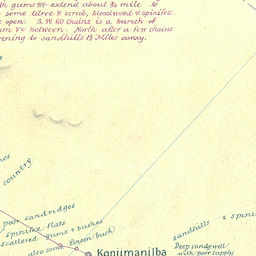 th gums &c extend about ½ mile to
some titree & scrub, bloodwood & spinifex
open. S.W. 60 chains is a bunch of
um &c between. North after a few chains
nning to sandhills 1½ Miles away.
country
poor sandridges
spinifex flats
scattered gums & bushes
also some Poison bush
sandhills & spini
Kanjimanilba
Deep sandy well
with poor supply